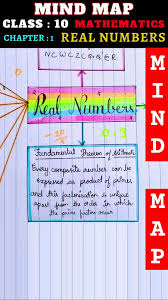 MIND MAP
CLASS : 10 MATHEMATICS
CHAPTER : 1 REAL NUMBERS
NCWCZCQCR
Real Numbers
-20
0.3
Fundamental Theorem of Arithmetic
Every composite number can be
expressed as product of primes
and this factorization is unique
apart from the order in which
the prime factors occur
MIND
MAP